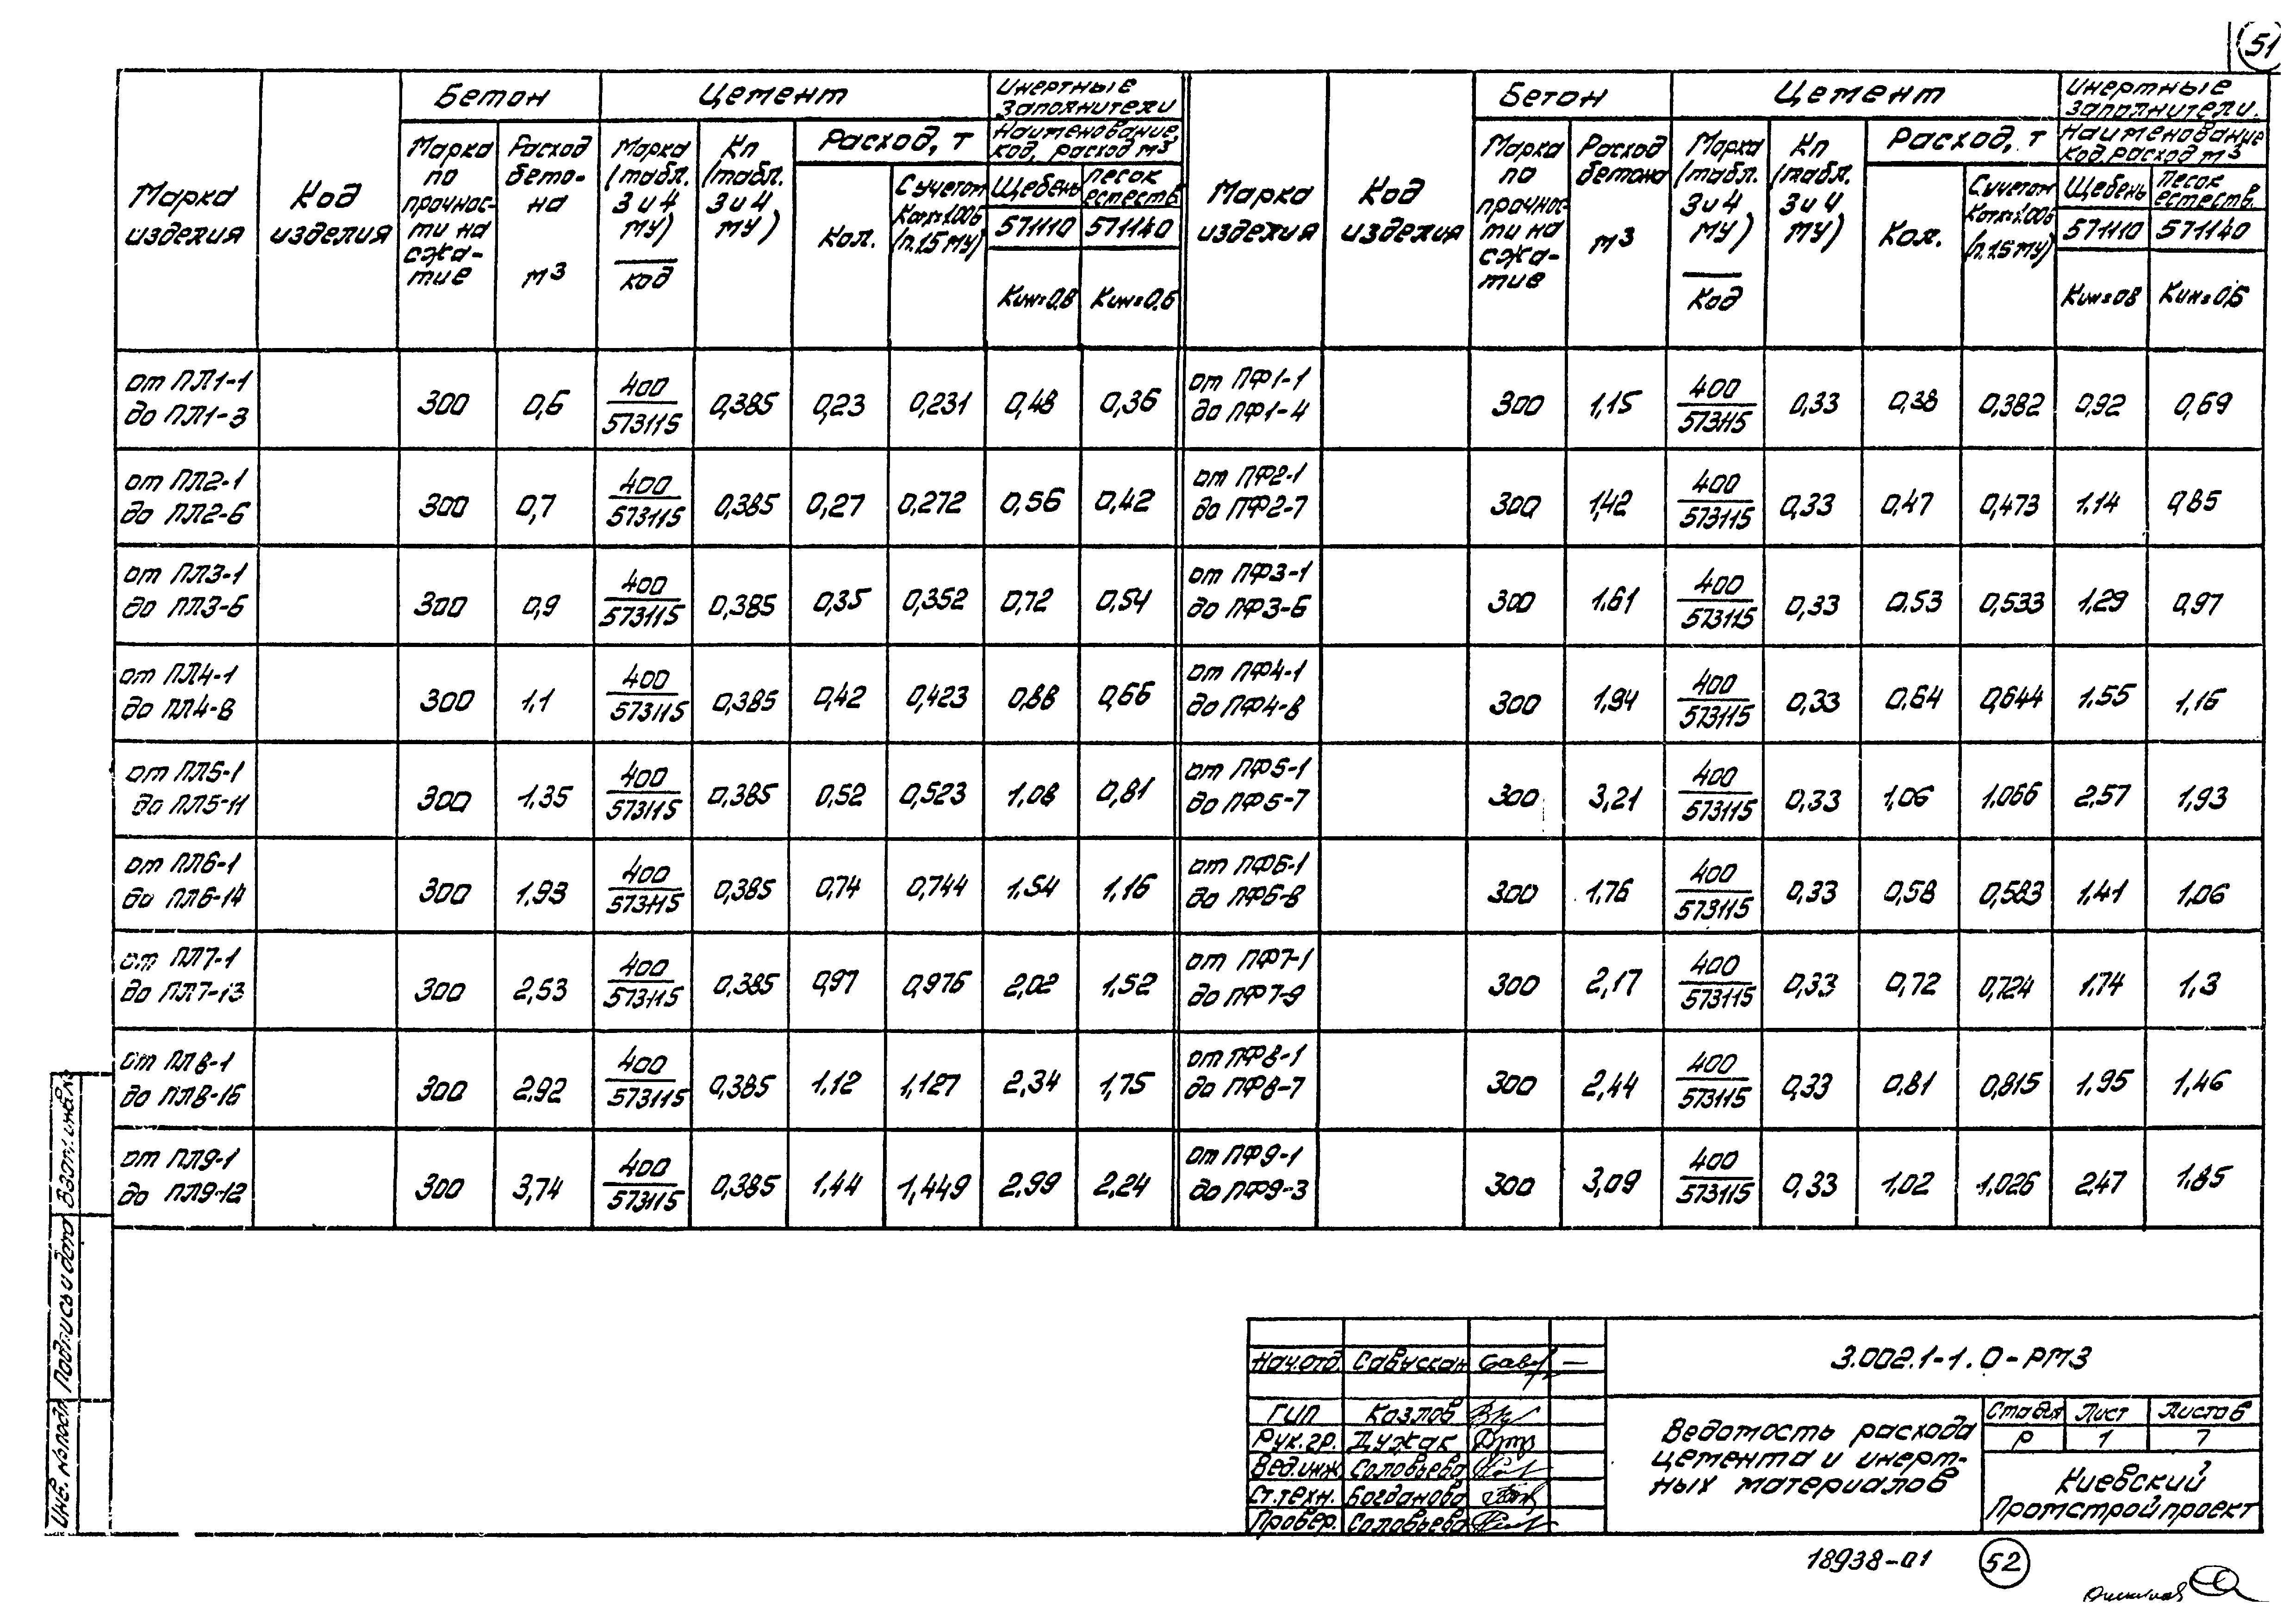 51
Марка изделия
Код изделия
Бетон
Марка по прочнос-ти на сжа-тие
Расход бето-на м³
Цемент
Марка (табл. 3 и 4 МУ) код
Кп (табл. 3 и 4 МУ)
Расход, т
Кол.
С учетом Котх=1,006 (п.1.5 МУ)
Инертные заполнители
Наименование, код, расход м³
Щебень 571110 Кин=0,8
Песок естеств. 571140 Кин=0,6
Марка изделия
Код изделия
Бетон
Марка по прочнос-ти на сжа-тие
Расход бетона м³
Цемент
Марка (табл. 3 и 4 МУ) Код
Кп (табл. 3 и 4 МУ)
Расход, т
Кол.
С учетом Котх=1,006 (п.1.5 МУ)
Инертные заполнители.
Наименование Код, расход м³
Щебень 571110 Кин=0,8
Песок естеств. 571140 Кин=0,6
от ПЛ1-1 до ПЛ1-3 300 0,6 400/573115 0,385 0,23 0,231 0,48 0,36
от ПФ1-1 до ПФ1-4 300 1,15 400/573115 0,33 0,38 0,382 0,92 0,69
от ПЛ2-1 до ПЛ2-6 300 0,7 400/573115 0,385 0,27 0,272 0,56 0,42
от ПФ2-1 до ПФ2-7 300 1,42 400/573115 0,33 0,47 0,473 1,14 0,85
от ПЛ3-1 до ПЛ3-6 300 0,9 400/573115 0,385 0,35 0,352 0,72 0,54
от ПФ3-1 до ПФ3-6 300 1,61 400/573115 0,33 0,53 0,533 1,29 0,97
от ПЛ4-1 до ПЛ4-8 300 1,1 400/573115 0,385 0,42 0,423 0,88 0,66
от ПФ4-1 до ПФ4-8 300 1,94 400/573115 0,33 0,64 0,644 1,55 1,16
от ПЛ5-1 до ПЛ5-11 300 1,35 400/573115 0,385 0,52 0,523 1,08 0,81
от ПФ5-1 до ПФ5-7 300 3,21 400/573115 0,33 1,06 1,066 2,57 1,93
от ПЛ6-1 до ПЛ6-14 300 1,93 400/573115 0,385 0,74 0,744 1,54 1,16
от ПФ6-1 до ПФ6-8 300 1,76 400/573115 0,33 0,58 0,583 1,41 1,06
от ПЛ7-1 до ПЛ7-13 300 2,53 400/573115 0,385 0,97 0,976 2,02 1,52
от ПФ7-1 до ПФ7-9 300 2,17 400/573115 0,33 0,72 0,724 1,74 1,3
от ПЛ8-1 до ПЛ8-16 300 2,92 400/573115 0,385 1,12 1,127 2,34 1,75
от ПФ8-1 до ПФ8-7 300 2,44 400/573115 0,33 0,81 0,815 1,95 1,46
от ПЛ9-1 до ПЛ9-12 300 3,74 400/573115 0,385 1,44 1,449 2,99 2,24
от ПФ9-1 до ПФ9-3 300 3,09 400/573115 0,33 1,02 1,026 2,47 1,85
Инв. № подл. Подпись и дата Взам. инв. №
Нач.отд.
Гип Козлов
Рук.гр. Дужак
Вед.инж Соловьева
Ст.техн. Богданова
Провер. Соловьева
3.002.1-1.0-РМ3
Ведомость расхода
цемента и инерт-
ных материалов
Стадия Лист Листов
Р 1 7
Киевский
Промстройпроект
18938-01 52